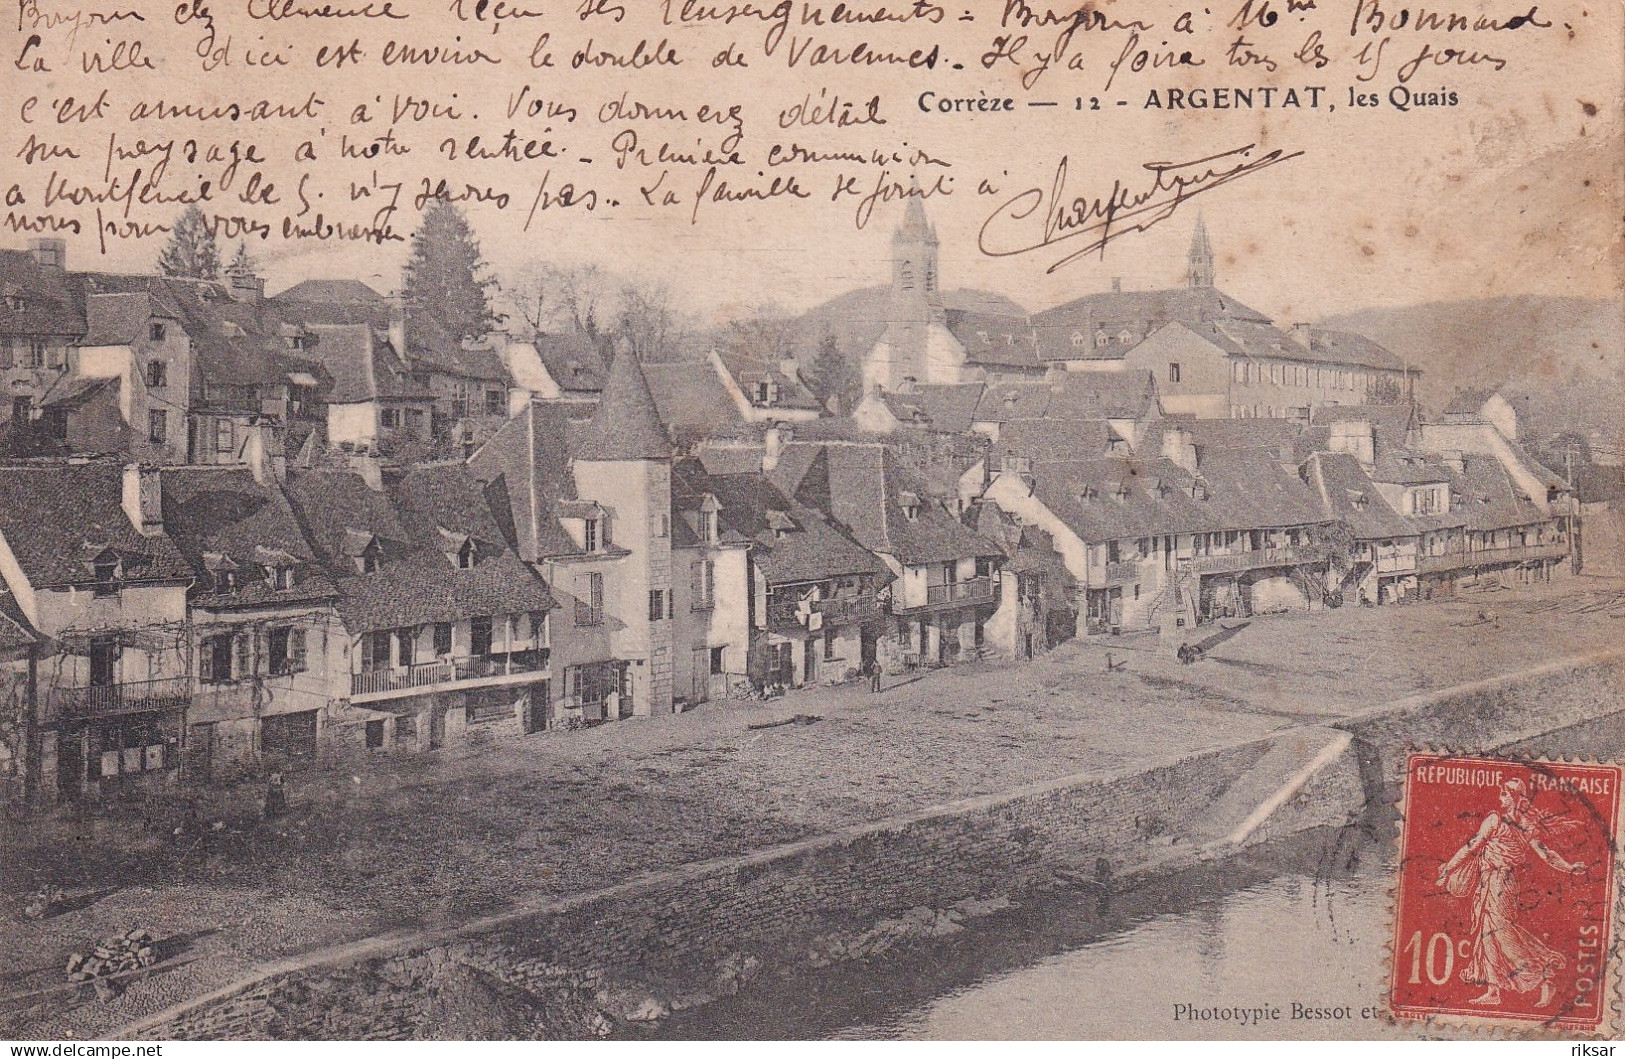 Bonjour chez Clémence reçu ses renseignements = Bonjour à Mme Bonnard.
La ville d'ici est environ le double de Varennes. - Il y a foire tous les 15 jours
c'est amusant à voir. Vous donnerez détail
sur paysage à notre rentrée. - Première communion
a Montfermeil le 5. n'y serons pas. - La famille se joint à
nous pour vous embrasser.
Charpentier
Corrèze — 12 - ARGENTAT, les Quais
RÉPUBLIQUE FRANÇAISE
10c
POSTES
Phototypie Bessot et
riksar